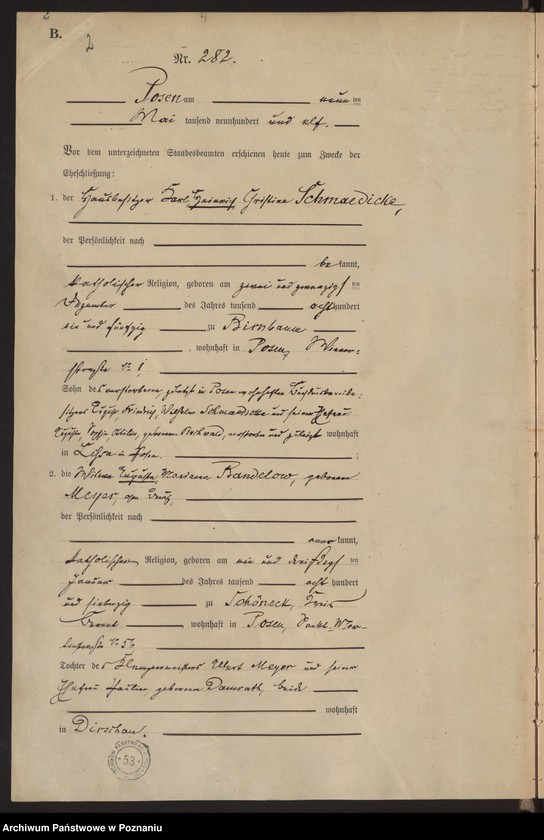 2
B.
2
Nr. 282.
Posen am neun ten
Mai tausend neunhundert und elf.
Vor dem unterzeichneten Standesbeamten erschienen heute zum Zwecke der
Eheschließung:
1. der Hausbesitzer Karl Heinrich Christian Schmaedicke,
der Persönlichkeit nach
be kannt,
katholischer Religion, geboren am zwei und zwanzigs ten
Dezember des Jahres tausend acht hundert
ein und fünfzig zu Birnbaum
, wohnhaft in Posen, Wiener-
straße Nr. 1
Sohn des verstorbenen, zuletzt in Posen wohnhaften
Heinrich, Wilhelm Schmaedicke und seiner Ehefrau
geborenen verstorben und zuletzt wohnhaft
in Lissa in Posen. ;
2. die Witwe Auguste, Marianna Randelow, geborene
Meyer,
der Persönlichkeit nach
aner kannt,
katholischer Religion, geboren am ein und dreißigs ten
Januar des Jahres tausend acht hundert
und siebenzig zu Schöneck, Kreis
Berent wohnhaft in Posen, Sankt-Mar-
tinstraße Nr.
Tochter des Klempnermeisters Albert Meyer und seiner
Ehefrau Pauline geborenen Damrath, beide
wohnhaft
in Dirschau.
53
Archiwum Państwowe w Poznaniu